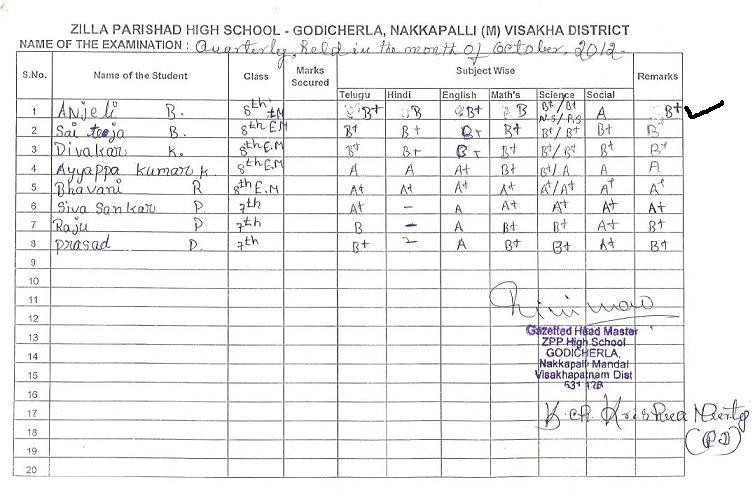 ZILLA PARISHAD HIGH SCHOOL - GODICHERLA, NAKKAPALLI (M) VISAKHA DISTRICT
NAME OF THE EXAMINATION : Quarterly, held in the month of october, 2012.
S.No. Name of the Student Class Marks Secured Subject Wise Remarks
Telugu Hindi English Math's Science Social
1 Anjeli B. 8th EM B+ B B+ B B+/B+ A B+
N.S/P.S
2 Sai teja B. 8th EM B+ B+ B+ B+ B+/B+ B+ B+
3 Divakar K. 8th E.M B+ B+ B+ B+ B+/B+ B+ B+
4 Ayyappa kumar K. 8th E.M A A A+ B+ B+/A A A
5 Bhavani R 8th E.M A+ A+ A+ A+ A+/A+ A+ A+
6 Siva Sankar P. 7th A+ - A A+ A+ A+ A+
7 Raju P 7th B - A B+ B+ A+ B+
8 prasad D. 7th B+ - A B+ B+ A+ B+
9
10
11
12
13
14
15
16
17
18
19
20
Gazetted Head Master
ZPP High School
GODICHERLA,
Nakkapalli Mandal
Visakhapatnam Dist
531 126
K.ch. Krishna Murty
(PD)